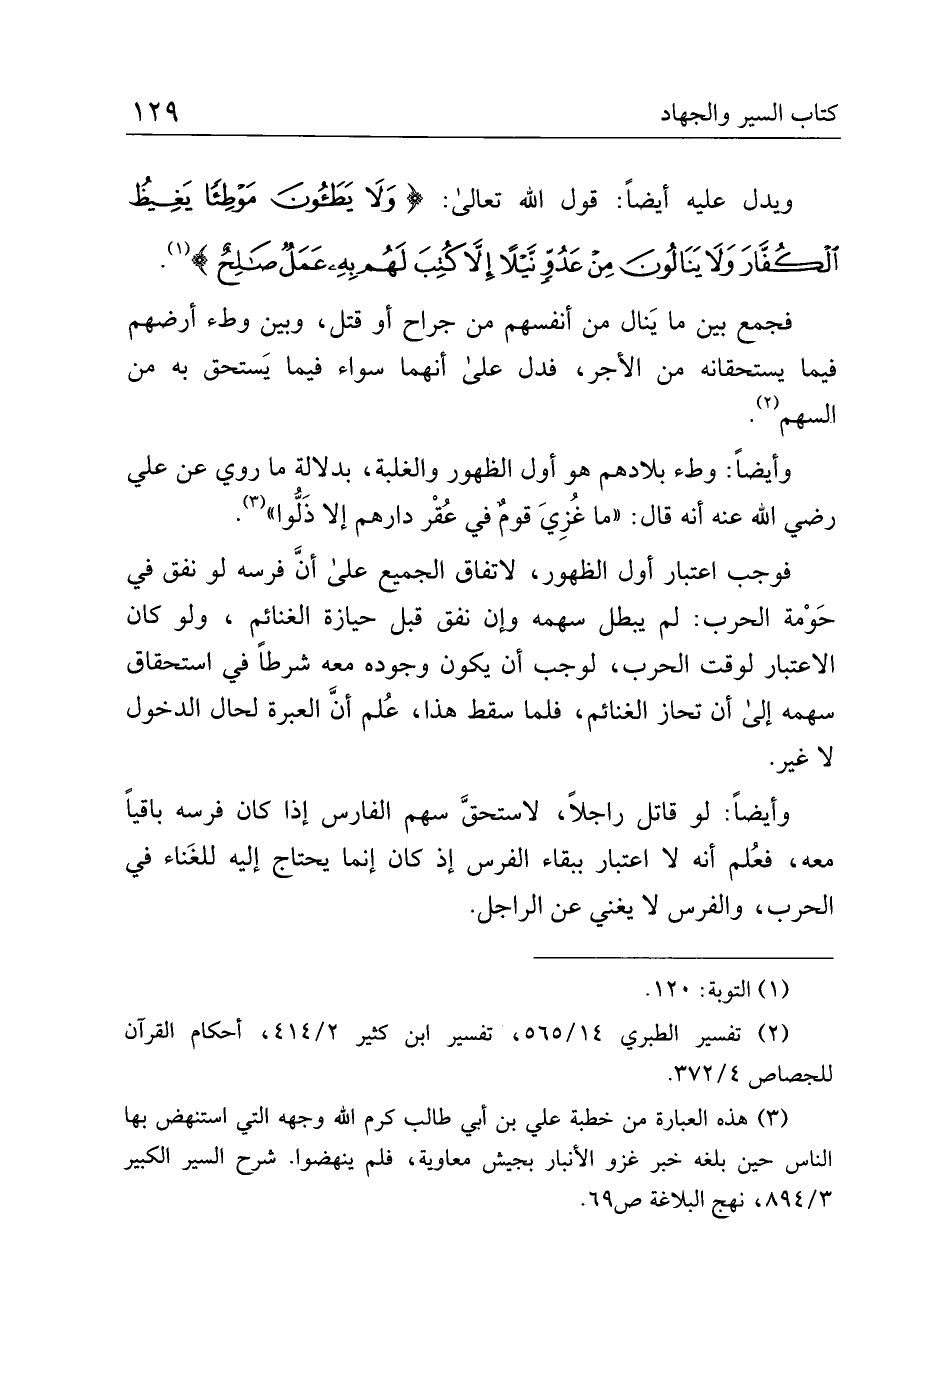 كتاب السير والجهاد ١٢٩
ويدل عليه أيضاً: قول الله تعالىٰ: ﴿ وَلَا يَطَـُٔونَ مَوْطِئًا يَغِيظُ
ٱلْكُفَّارَ وَلَا يَنَالُونَ مِنْ عَدُوٍّ نَّيْلًا إِلَّا كُتِبَ لَهُم بِهِۦ عَمَلٌ صَٰلِحٌ ﴾(١).
فجمع بين ما يَنال من أنفسهم من جراح أو قتل، وبين وطء أرضهم
فيما يستحقانه من الأجر، فدل علىٰ أنهما سواء فيما يَستحق به من
السهم(٢).
وأيضاً: وطء بلادهم هو أول الظهور والغلبة، بدلالة ما روي عن علي
رضي الله عنه أنه قال: «ما غُزِيَ قومٌ في عُقْر دارهم إلا ذَلُّوا»(٣).
فوجب اعتبار أول الظهور، لاتفاق الجميع علىٰ أنَّ فرسه لو نفق في
حَوْمة الحرب: لم يبطل سهمه وإن نفق قبل حيازة الغنائم ، ولو كان
الاعتبار لوقت الحرب، لوجب أن يكون وجوده معه شرطاً في استحقاق
سهمه إلىٰ أن تحاز الغنائم، فلما سقط هذا، عُلم أنَّ العبرة لحال الدخول
لا غير.
وأيضاً: لو قاتل راجلاً، لاستحقَّ سهم الفارس إذا كان فرسه باقياً
معه، فعُلم أنه لا اعتبار ببقاء الفرس إذ كان إنما يحتاج إليه للغَناء في
الحرب، والفرس لا يغني عن الراجل.
(١) التوبة: ١٢٠.
(٢) تفسير الطبري ٥٦٥/١٤، تفسير ابن كثير ٤١٤/٢، أحكام القرآن
للجصاص ٣٧٢/٤.
(٣) هذه العبارة من خطبة علي بن أبي طالب كرم الله وجهه التي استنهض بها
الناس حين بلغه خبر غزو الأنبار بجيش معاوية، فلم ينهضوا. شرح السير الكبير
٨٩٤/٣، نهج البلاغة ص٦٩.